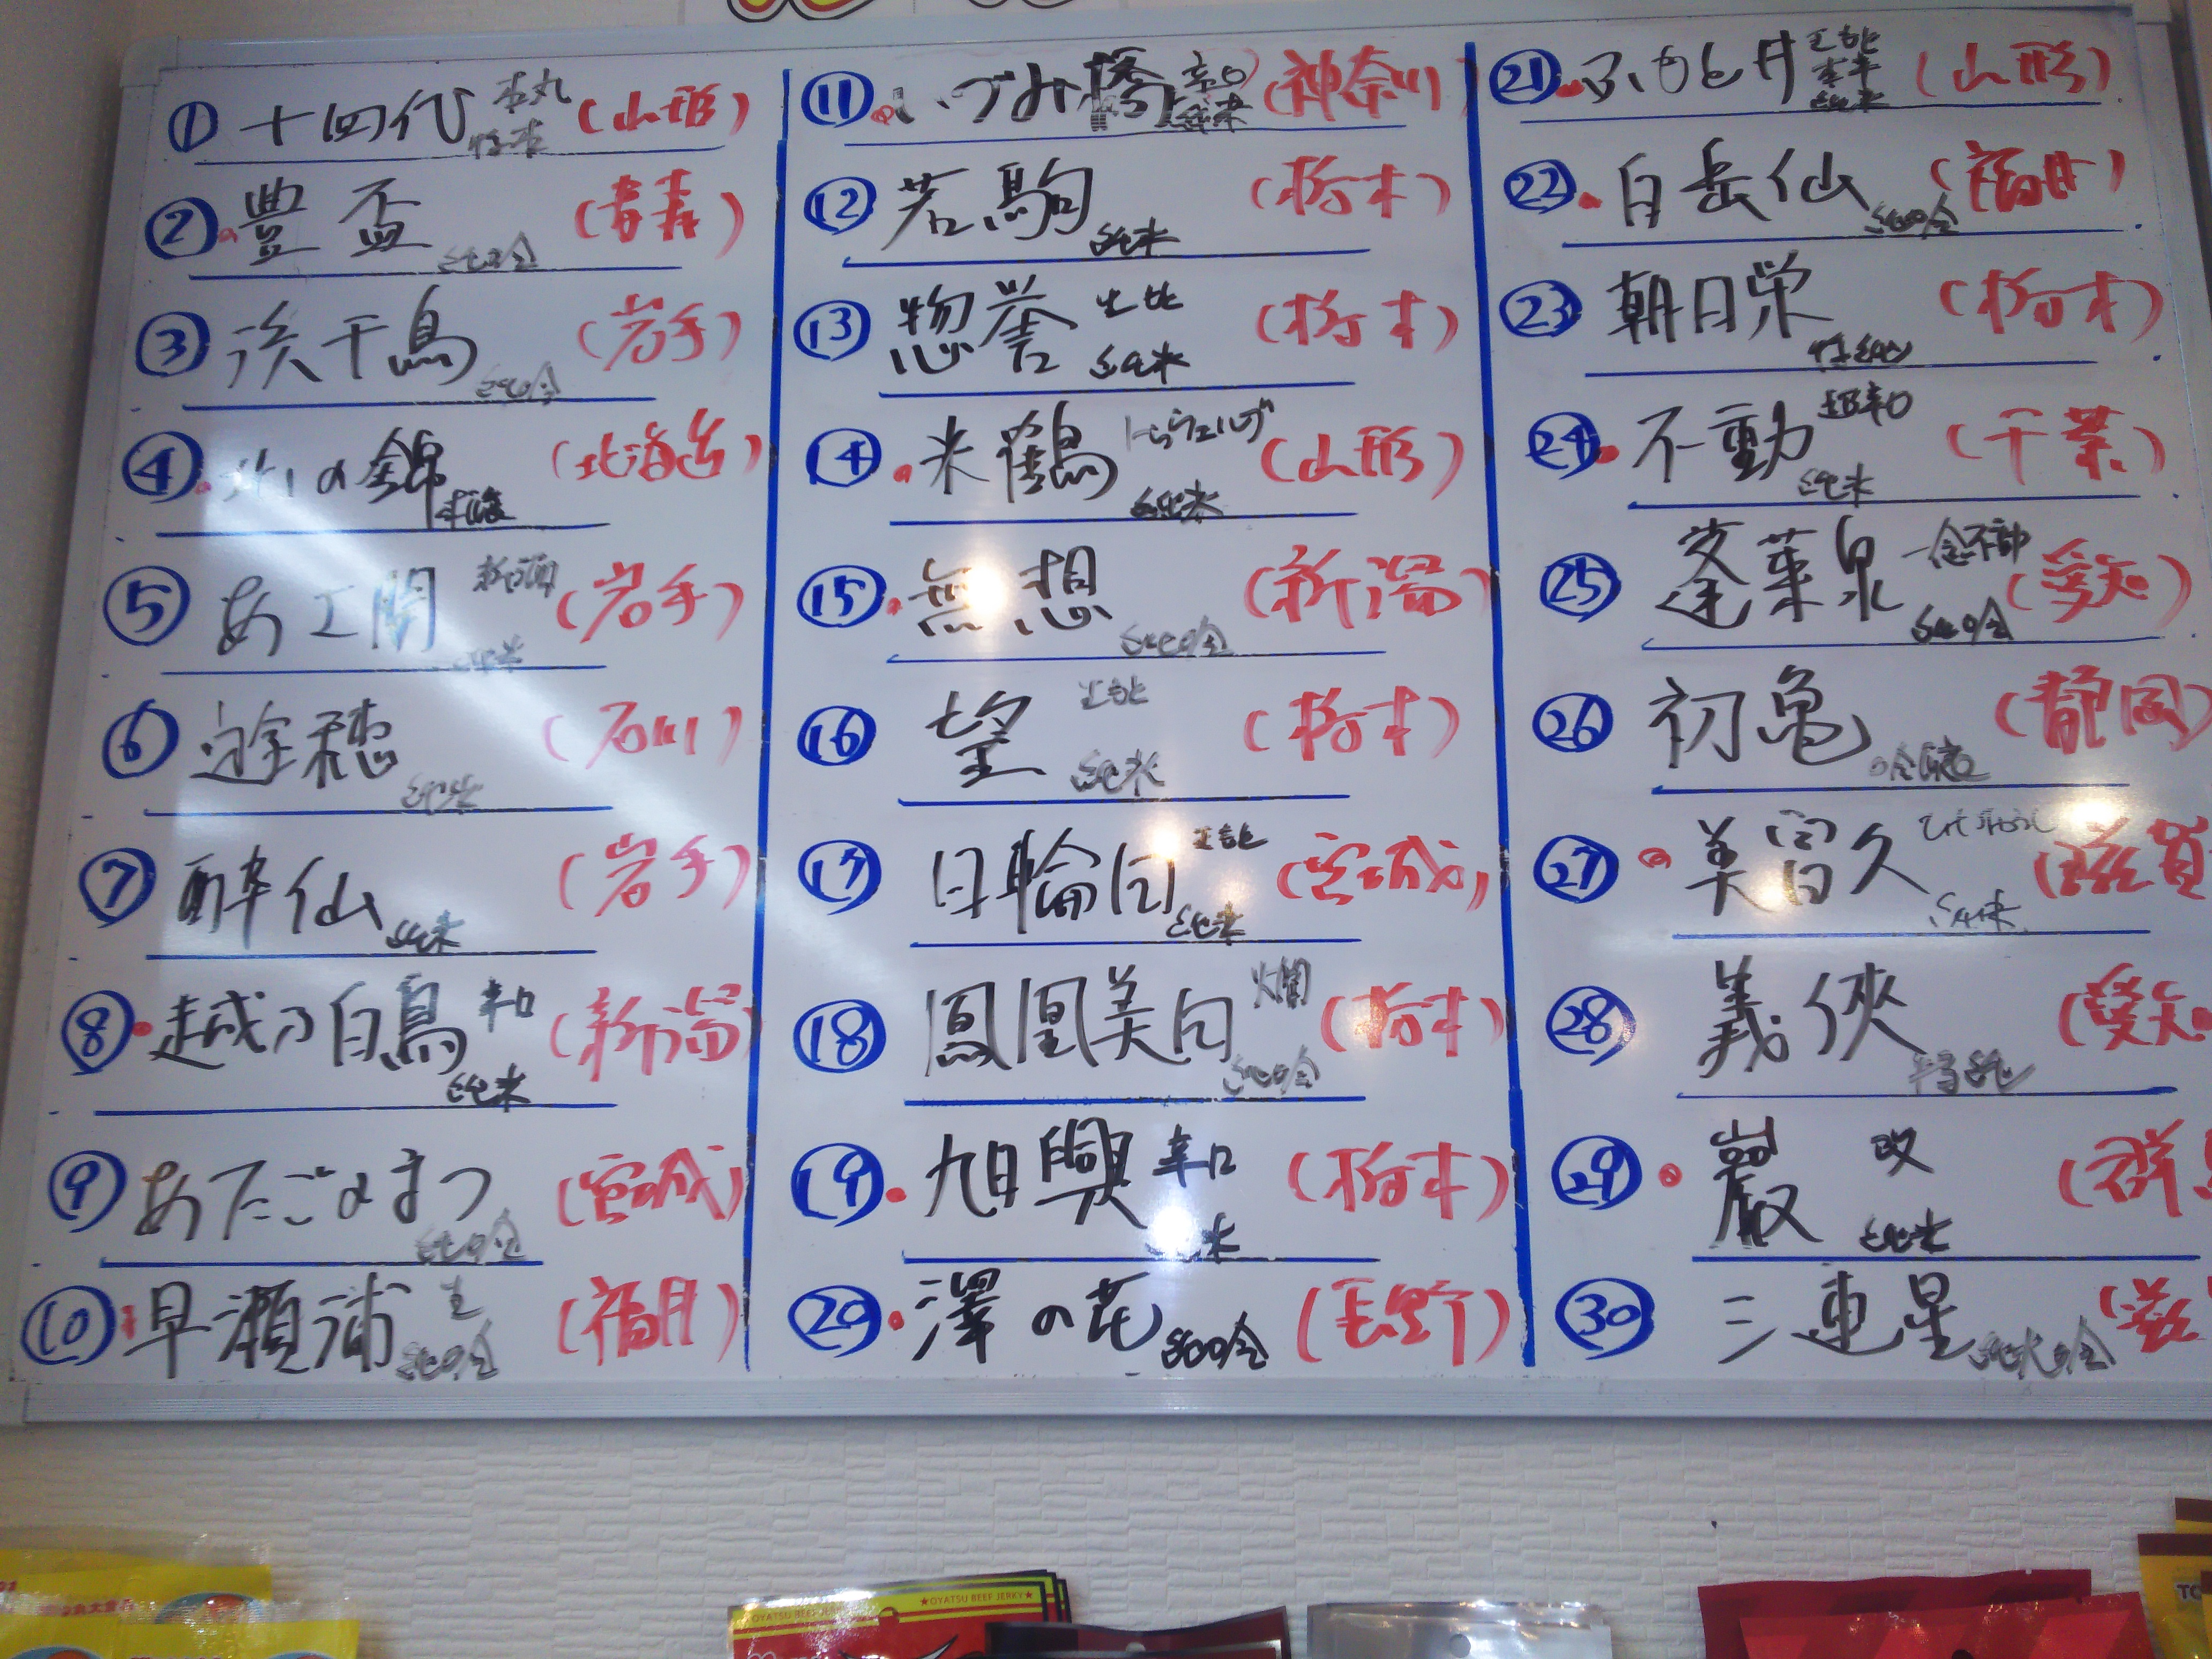 ① 十四代 本丸 特本 (山形)
② 豊盃 純吟 (青森)
③ 浜千鳥 純吟 (岩手)
④ 北の錦 (北海道)
⑤ あさ開 純米 (岩手)
⑥ 遊穂 純米 (石川)
⑦ 酔仙 純米 (岩手)
⑧ 越乃白鳥 辛口 純米 (新潟)
⑨ あたごのまつ 純吟 (宮城)
⑩ 早瀬浦 生 純吟 (福井)
⑪ いづみ橋 辛口 純米 (神奈川)
⑫ 若駒 純米 (栃木)
⑬ 惣誉 生酛 純米 (栃木)
⑭ 米鶴 純米 (山形)
⑮ 無想 純吟 (新潟)
⑯ 望 生もと 純米 (栃木)
⑰ 日輪田 純米 (宮城)
⑱ 鳳凰美田 燗 純吟 (栃木)
⑲ 旭興 辛口 純米 (栃木)
⑳ 澤の花 純吟 (長野)
㉑ ふもと井 生もと 純米 (山形)
㉒ 白岳仙 純吟 (福井)
㉓ 朝日栄 特純 (栃木)
㉔ 不動 超辛口 純米 (千葉)
㉕ 蓬莱泉 一念不動 純吟 (愛知)
㉖ 初亀 (静岡)
㉗ 美冨久 純米 (滋賀
㉘ 義侠 特純 (愛知
㉙ 巖 改 純米 (群馬
㉚ 三連星 純米吟 (滋
★OYATSU BEEF JERKY★